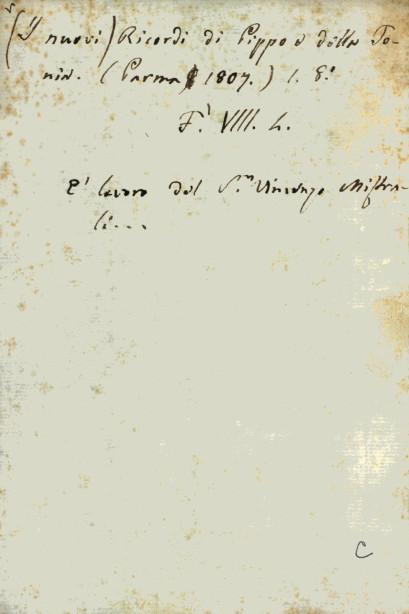 (I nuovi) Ricordi di Pippo e della To-
nia. (Parma 1807.) 1. 8.°
F.' VIII. 4.
E' lavoro del S.r Vincenzo Mistra-
li...
C